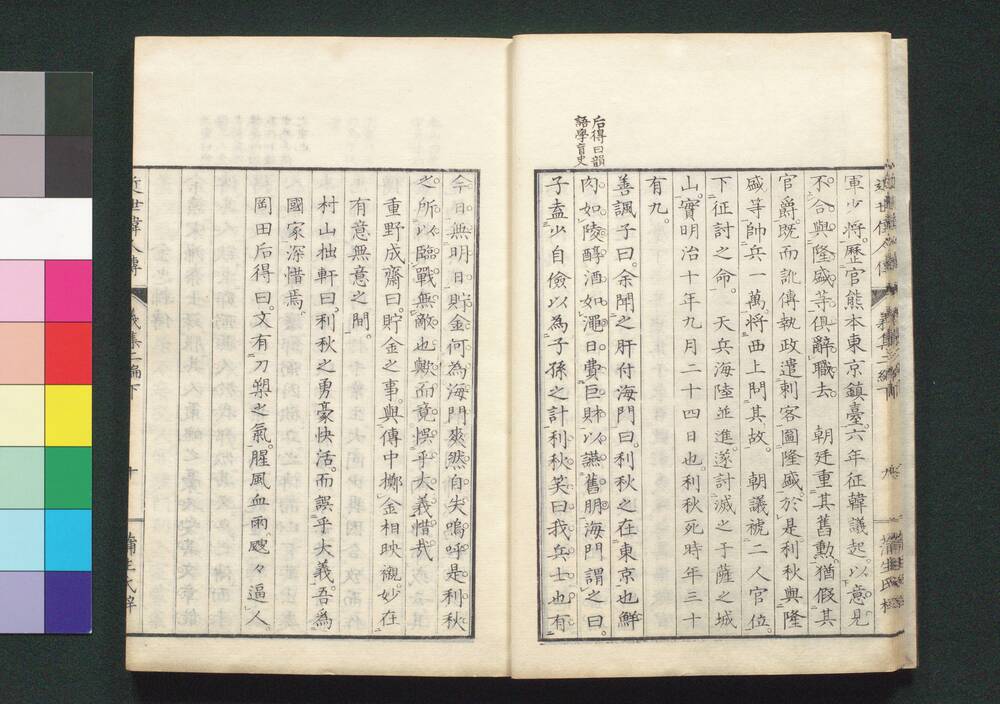 軍少將。歷官熊本東京鎮臺。六年征韓議起。以意見
不合與隆盛等俱辭職去。　朝廷重其舊勳猶假其
官爵。既而訛傳執政遣刺客圖隆盛。於是利秋與隆
盛等帥兵一萬。將西上問其故。　朝議褫二人官位。
下征討之命。　天兵海陸並進。遂討滅之于薩之城
山。實明治十年九月二十四日也。利秋死時年三十
有九。
后得曰韻
語學盲史
善諷子曰。余聞之肝付海門曰。利秋之在東京也鮮
肉如陵醇酒如澠。日費巨財以讌舊朋。海門謂之曰。
子盍少自儉以為子孫之計。利秋笑曰。我兵士也有
今日無明日。貯金何為。海門爽然自失。嗚呼是利秋
之所以臨戰無敵也歟。而竟悞乎大義。惜哉。
重野成齋曰。貯金之事。與傳中擲金相映襯。妙在
有意無意之間。
村山拙軒曰。利秋之勇豪快活。而誤乎大義。吾為
國家深惜焉。
岡田后得曰。文有刀槊之氣。腥風血雨。颼々逼人。
近世偉人傳
義集二編下
十
蒲生氏梓